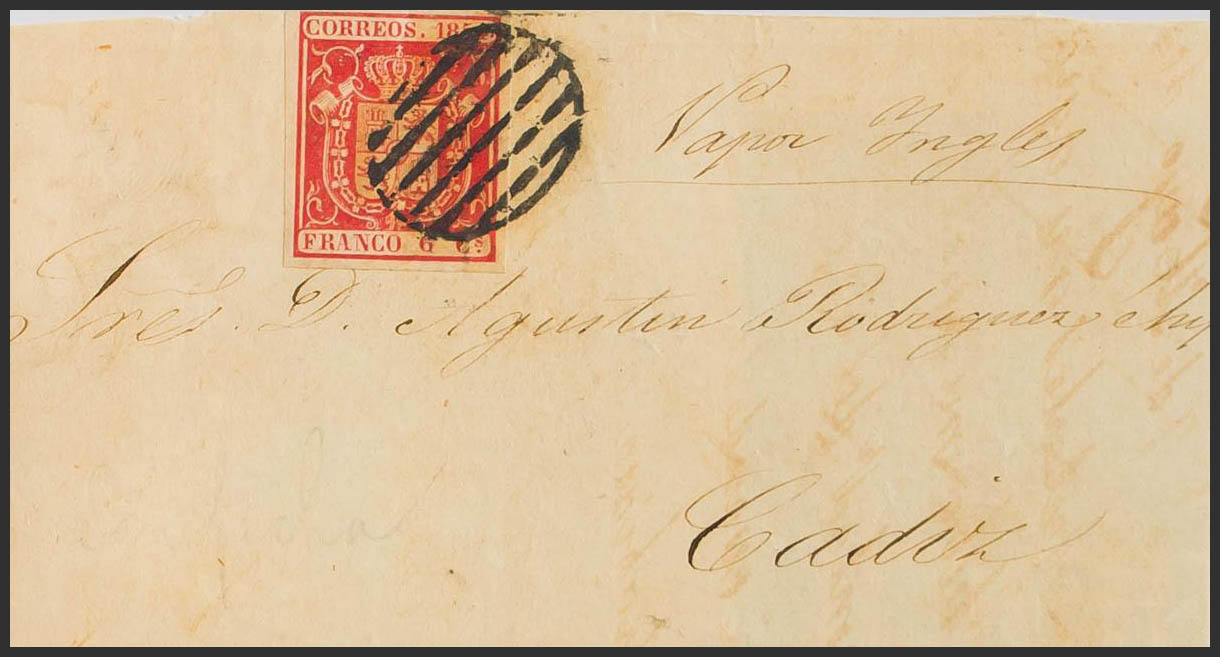 CORREOS. 185
FRANCO 6 Cs.
Vapor Ingles
Sres. D. Agustin Rodriguez, é hy
Cadiz